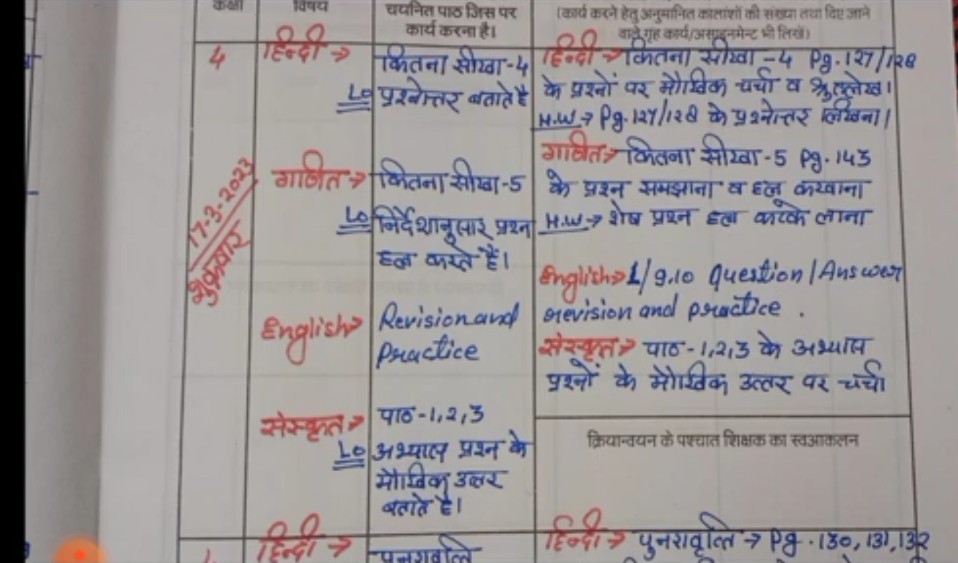 कक्षा
विषय
चयनित पाठ जिस पर
कार्य करना है।
(कार्य करने हेतु अनुमानित कालांशों की संख्या तथा दिए जाने
वाले गृह कार्य/असाइनमेन्ट भी लिखें)
17-3-2023
शुक्रवार
4
हिन्दी →
कितना सीखा-4
Lo प्रश्नोत्तर बताते है
गणित →
कितना सीखा-5
Lo निर्देशानुसार प्रश्न
हल करते हैं।
English →
Revision and
Practice
संस्कृत →
पाठ-1,2,3
Lo अभ्यास प्रश्न के
मौखिक उत्तर
बताते है।
हिन्दी → कितना सीखा -4 Pg.127/128
के प्रश्नों पर मौखिक चर्चा व श्रुतलेख।
H.W → Pg.127/128 के प्रश्नोत्तर लिखना।
गणित → कितना सीखा -5 Pg.143
के प्रश्न समझाना व हल करवाना
H.W → शेष प्रश्न हल करके लाना
English → L/9,10 Question/Answer
revision and practice.
संस्कृत → पाठ-1,2,3 के अभ्यास
प्रश्नों के मौखिक उत्तर पर चर्चा
क्रियान्वयन के पश्चात शिक्षक का स्वआकलन
हिन्दी →
पुनरावृत्ति
हिन्दी → पुनरावृत्ति → Pg.130,131,132